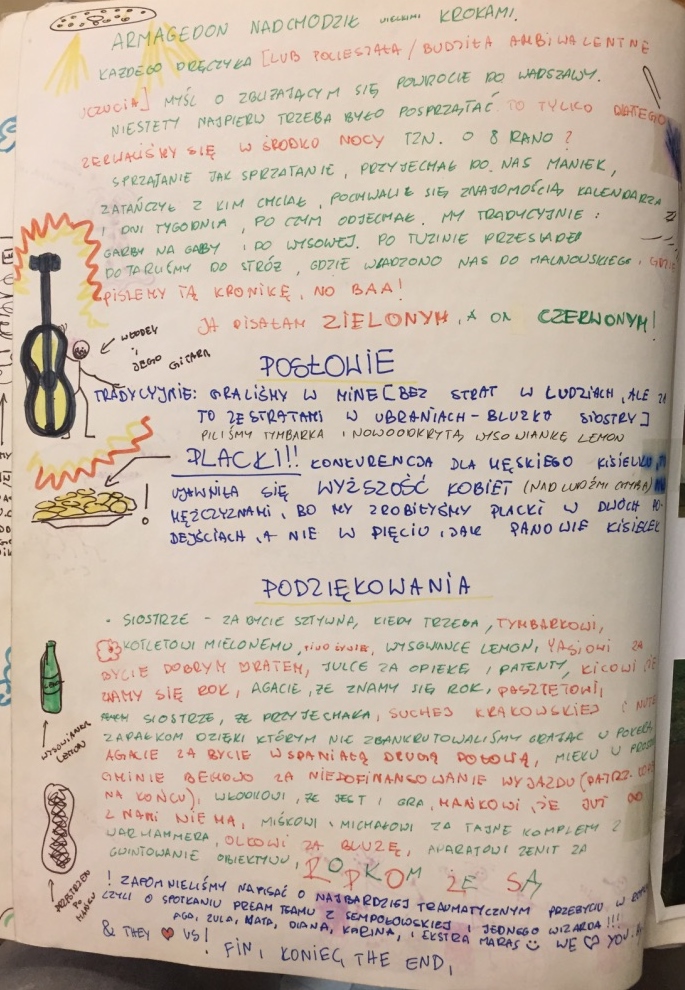 ARMAGEDON NADCHODZIŁ WIELKIMI KROKAMI.
KAŻDEGO DRĘCZYŁA [LUB POCIESZAŁA / BUDZIŁA AMBIWALENTNE
UCZUCIA] MYŚL O ZBLIŻAJĄCYM SIĘ POWROCIE DO WARSZAWY.
NIESTETY NAJPIERW TRZEBA BYŁO POSPRZĄTAĆ. TO TYLKO DLATEGO
ZERWALIŚMY SIĘ W ŚRODKO NOCY TZN. O 8 RANO?
SPRZĄTANIE JAK SPRZĄTANIE, PRZYJECHAŁ DO NAS MANIEK,
ZATAŃCZYŁ Z KIM CHCIAŁ, POCHWALIŁ SIĘ ZNAJOMOŚCIĄ KALENDARZA
I DNI TYGODNIA, PO CZYM ODJECHAŁ. MY TRADYCYJNIE:
GARBY NA GABY I DO WYSOWEJ. PO TUZINIE PRZESIADEK
DOTARLIŚMY DO STRÓŻ, GDZIE WSADZONO NAS DO MALINOWSKIEGO, GDZIE
PISZEMY TĄ KRONIKĘ, NO BAA!
JA PISAŁAM ZIELONYM, A ON CZERWONYM!
WŁODEK
I
JEGO GITARA
POSŁOWIE
TRADYCYJNIE: GRALIŚMY W MINE [BEZ STRAT W LUDZIACH, ALE ZA
TO ZE STRATAMI W UBRANIACH - BLUZKA SIOSTRY]
PILIŚMY TYMBARKA I NOWOODKRYTĄ WYSOWIANKĘ LEMON
PLACKI!!! KONKURENCJA DLA MĘSKIEGO KISIELKU,
UJAWNIŁA SIĘ WYŻSZOŚĆ KOBIET (NAD LUDŹMI CHYBA)
MĘŻCZYZNAMI, BO MY ZROBIŁYŚMY PLACKI W DWÓCH PO-
DEJŚCIACH, A NIE W PIĘCIU, JAK PANOWIE KISIELEK
!
PODZIĘKOWANIA
• SIOSTRZE - ZA BYCIE SZTYWNĄ, KIEDY TRZEBA, TYMBARKOWI,
KOTLETOWI MIELONEMU, WYSOWIANCE LEMON, YASIOWI ZA
BYCIE DOBRYM BRATEM, JULCE ZA OPIEKĘ I PATENTY, KICOWI ŻE
ZNAMY SIĘ ROK, AGACIE, ŻE ZNAMY SIĘ ROK, PASZTETOWI,
SIOSTRZE, ŻE PRZYJECHAŁA, SUCHEJ KRAKOWSKIEJ I NUTELLI
ZAPAŁKOM DZIĘKI KTÓRYM NIE ZBANKRUTOWALIŚMY GRAJĄC W POKERA,
AGACIE ZA BYCIE WSPANIAŁĄ DRUGĄ POŁOWĄ, MLEKU W PROSZKU
GMINIE BEMOWO ZA NIEDOFINANSOWANIE WYJAZDU (PATRZ
NA KOŃCU), WŁODKOWI, ŻE JEST I GRA, MAŃKOWI, ŻE JUŻ GO
Z NAMI NIE MA, MIŚKOWI I MICHAŁOWI ZA TAJNE KOMPLETY Z
WARHAMMERA, OLKOWI ZA BLUZĘ, APARATOWI ZENIT ZA
GWINTOWANIE OBIEKTYWU, ROPKOM ŻE SĄ
WYSOWIANKA
LEMON
PO
MAŃKU
! ZAPOMNIELIŚMY NAPISAĆ O NAJBARDZIEJ TRAUMATYCZNYM PRZEBYCIU W
CZYLI O SPOTKANIU DREAM TEAMU Z SEMPOŁOWSKIEJ I JEDNEGO WIZARDA!!!
AGA, ZULA, MATA, DIANA, KARINA, I EKSTRA MARAS WE ♥ YOU
& THEY ♥ US! FIN, KONIEC THE END,